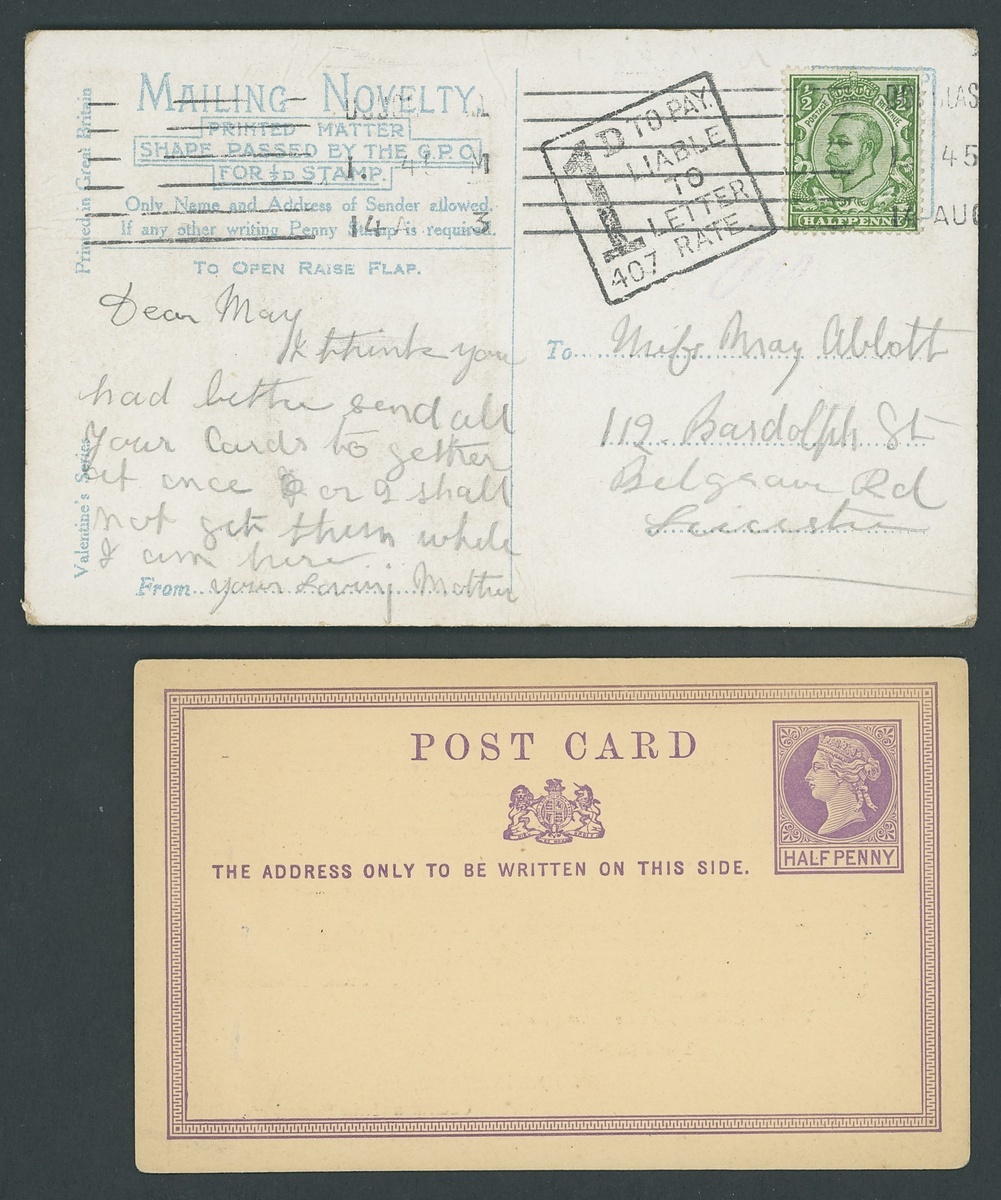 MAILING NOVELTY.
PRINTED MATTER
SHAPE PASSED BY THE G.P.O.
FOR ½D STAMP.
Only Name and Address of Sender allowed.
If any other writing Penny Stamp is required.
TO OPEN RAISE FLAP.
Printed in Great Britain
Valentine's Series
Dear May
I think you
had better send all
your Cards to gether
at once or I shall
not get them while
I am here
From your Loving Mother
1D TO PAY.
LIABLE
TO
LETTER
RATE.
407
14 AUG
45
½ ½
POSTAGE REVENUE
HALFPENNY
To Miss May Abbott
119. Bardolph St
Belgrave Rd
Leicester
POST CARD
THE ADDRESS ONLY TO BE WRITTEN ON THIS SIDE.
HALFPENNY